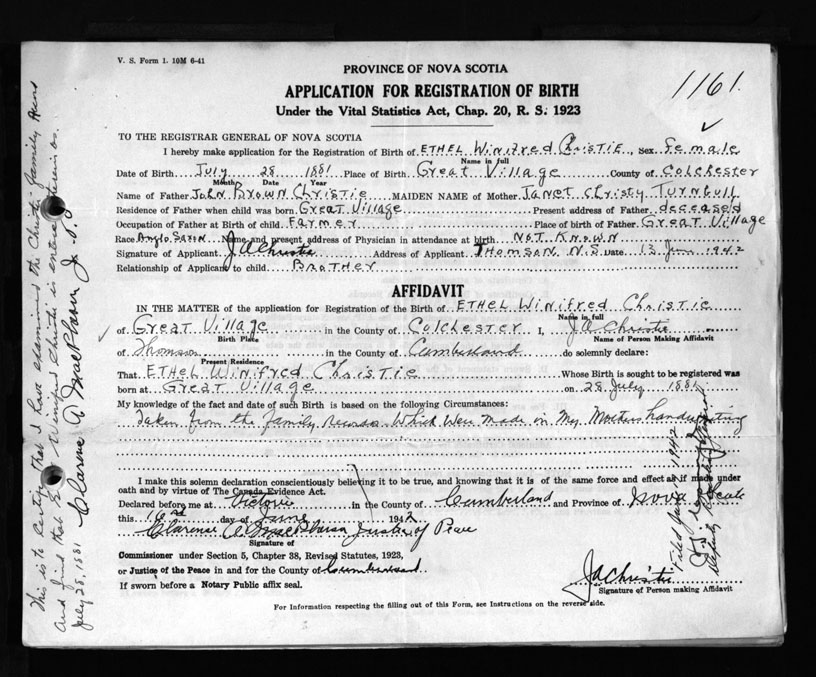 V. S. Form 1. 10M 6-41
1161.
PROVINCE OF NOVA SCOTIA
APPLICATION FOR REGISTRATION OF BIRTH
Under the Vital Statistics Act, Chap. 20, R. S. 1923
TO THE REGISTRAR GENERAL OF NOVA SCOTIA
I hereby make application for the Registration of Birth of ETHEL Winifred Christie, Sex female
Name in full
Date of Birth July 28 1881 Place of Birth Great Village County of Colchester
Month Date Year
Name of Father John Brown Christie MAIDEN NAME of Mother Janet Christy Turnbull
Residence of Father when child was born Great Village Present address of Father deceased
Occupation of Father at Birth of child Farmer Place of birth of Father Great Village
Race Anglo Saxon Name and present address of Physician in attendance at birth Not Known
Signature of Applicant J A Christie Address of Applicant Thomson N.S. Date 13 June 1942
Relationship of Applicant to child Brother
AFFIDAVIT
IN THE MATTER of the application for Registration of the Birth of ETHEL Winifred Christie
Name in full
of Great Village in the County of Colchester I, J A Christie
Birth Place Name of Person Making Affidavit
of Thomson in the County of Cumberland do solemnly declare:
Present Residence
That ETHEL Winifred Christie Whose Birth is sought to be registered was
born at Great Village on 28 July 1881
My knowledge of the fact and date of such Birth is based on the following Circumstances:
Taken from the family records Which Were made in My Mothers handwriting
I make this solemn declaration conscientiously believing it to be true, and knowing that it is of the same force and effect as if made under
oath and by virtue of The Canada Evidence Act.
Declared before me at Victoria in the County of Cumberland and Province of Nova Scotia
this 16 day of June 1942
Clarence A MacPherson Justice of Peace
Signature of
Commissioner under Section 5, Chapter 38, Revised Statutes, 1923,
or Justice of the Peace in and for the County of Cumberland
If sworn before a Notary Public affix seal.
J A Christie
Signature of Person making Affidavit
For Information respecting the filling out of this Form, see Instructions on the reverse side.
This is to certify that I have examined the Christie family
and find that Winifred Christie is entered therein as
July 28, 1881 Clarence A MacPherson J. P.
Filed June 1942
Deputy Registrar General